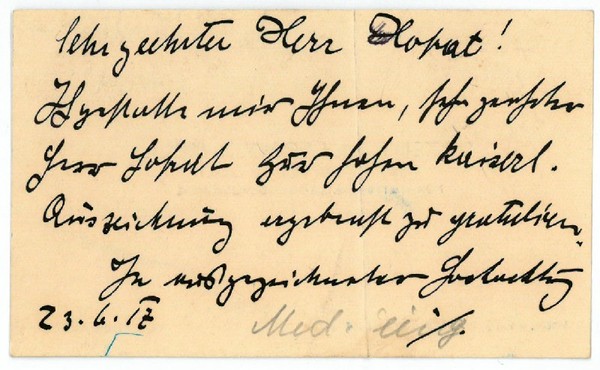 Sehr geehrter Herr Hofrat!
Ich gestatte mir Ihnen, sehr geehrter
Herr Hofrat zur hohen kaiserl.
Auszeichnung ergebenst zu gratulieren.
In ausgezeichneter Hochachtung
23.6.17 Med.